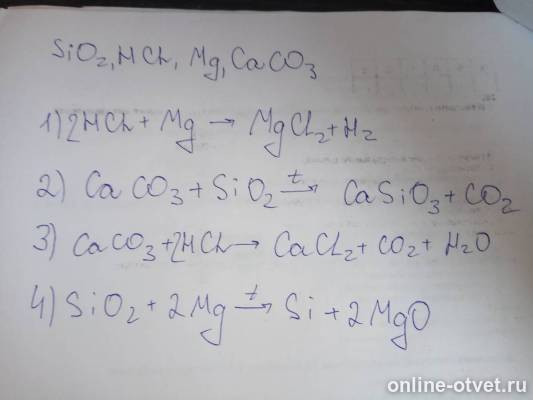 SiO₂, HCl, Mg, CaCO₃
1) 2HCl + Mg → MgCl₂ + H₂
2) CaCO₃ + SiO₂ →ᵗ CaSiO₃ + CO₂
3) CaCO₃ + 2HCl → CaCl₂ + CO₂ + H₂O
4) SiO₂ + 2Mg →ᵗ Si + 2MgO
online-otvet.ru